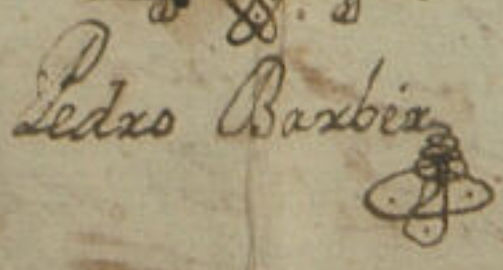 Pedro Barbér